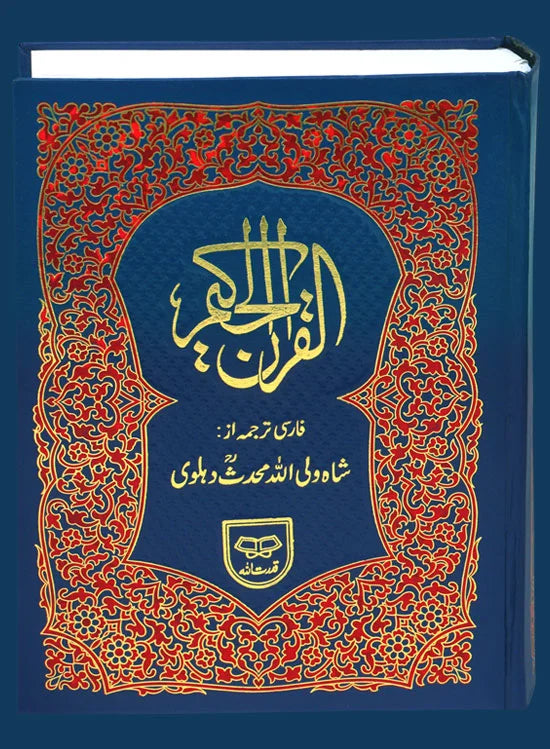 القرآن الحکیم
فارسی ترجمہ از:
شاہ ولی اللہ محدث دہلوی ؒ
قدرت اللہ